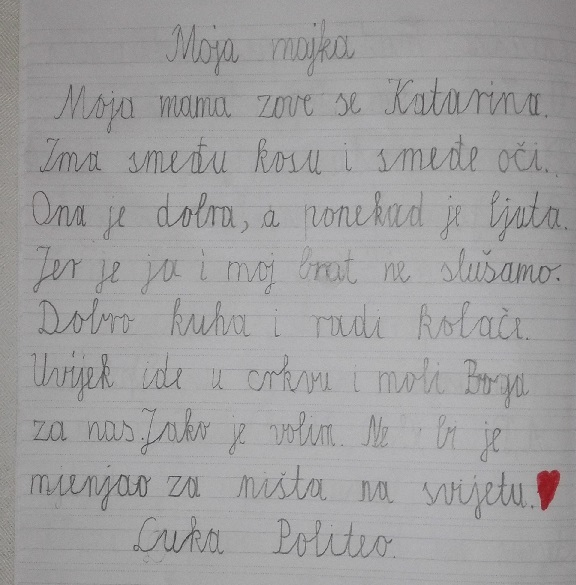 Moja majka
Moja mama zove se Katarina.
Ima smeđu kosu i smeđe oči.
Ona je dobra, a ponekad je ljuta.
Jer je ja i moj brat ne slušamo.
Dobro kuha i radi kolače.
Uvijek ide u crkvu i moli Boga
za nas. Jako je volim. Ne bi je
mjenjao za ništa na svijetu.
Luka Politeo.